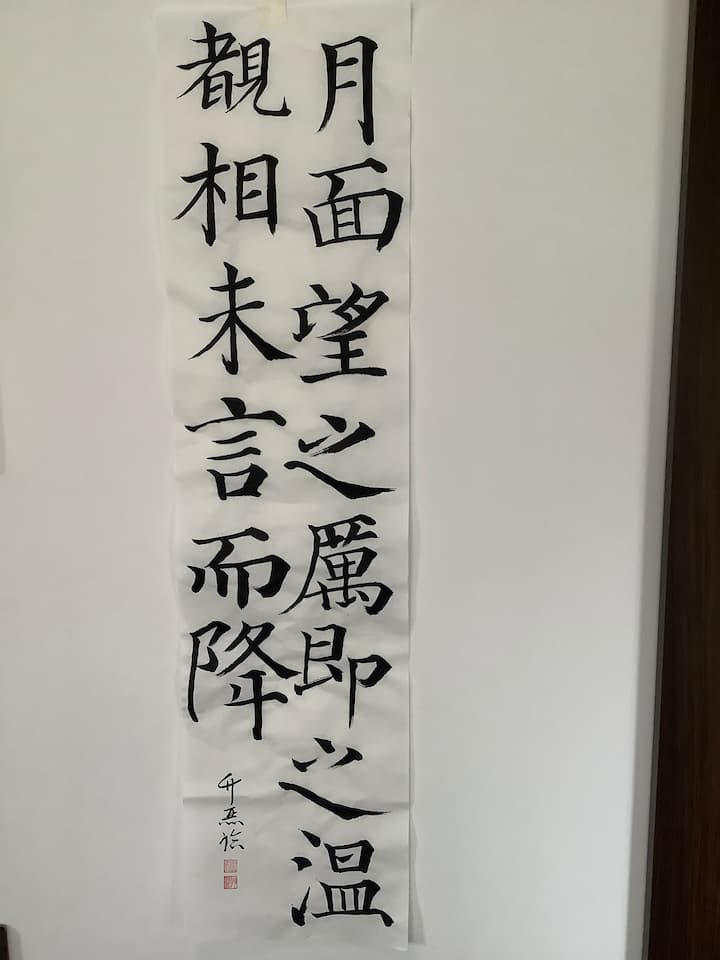 月面望之厲即之温
覩相未言而降